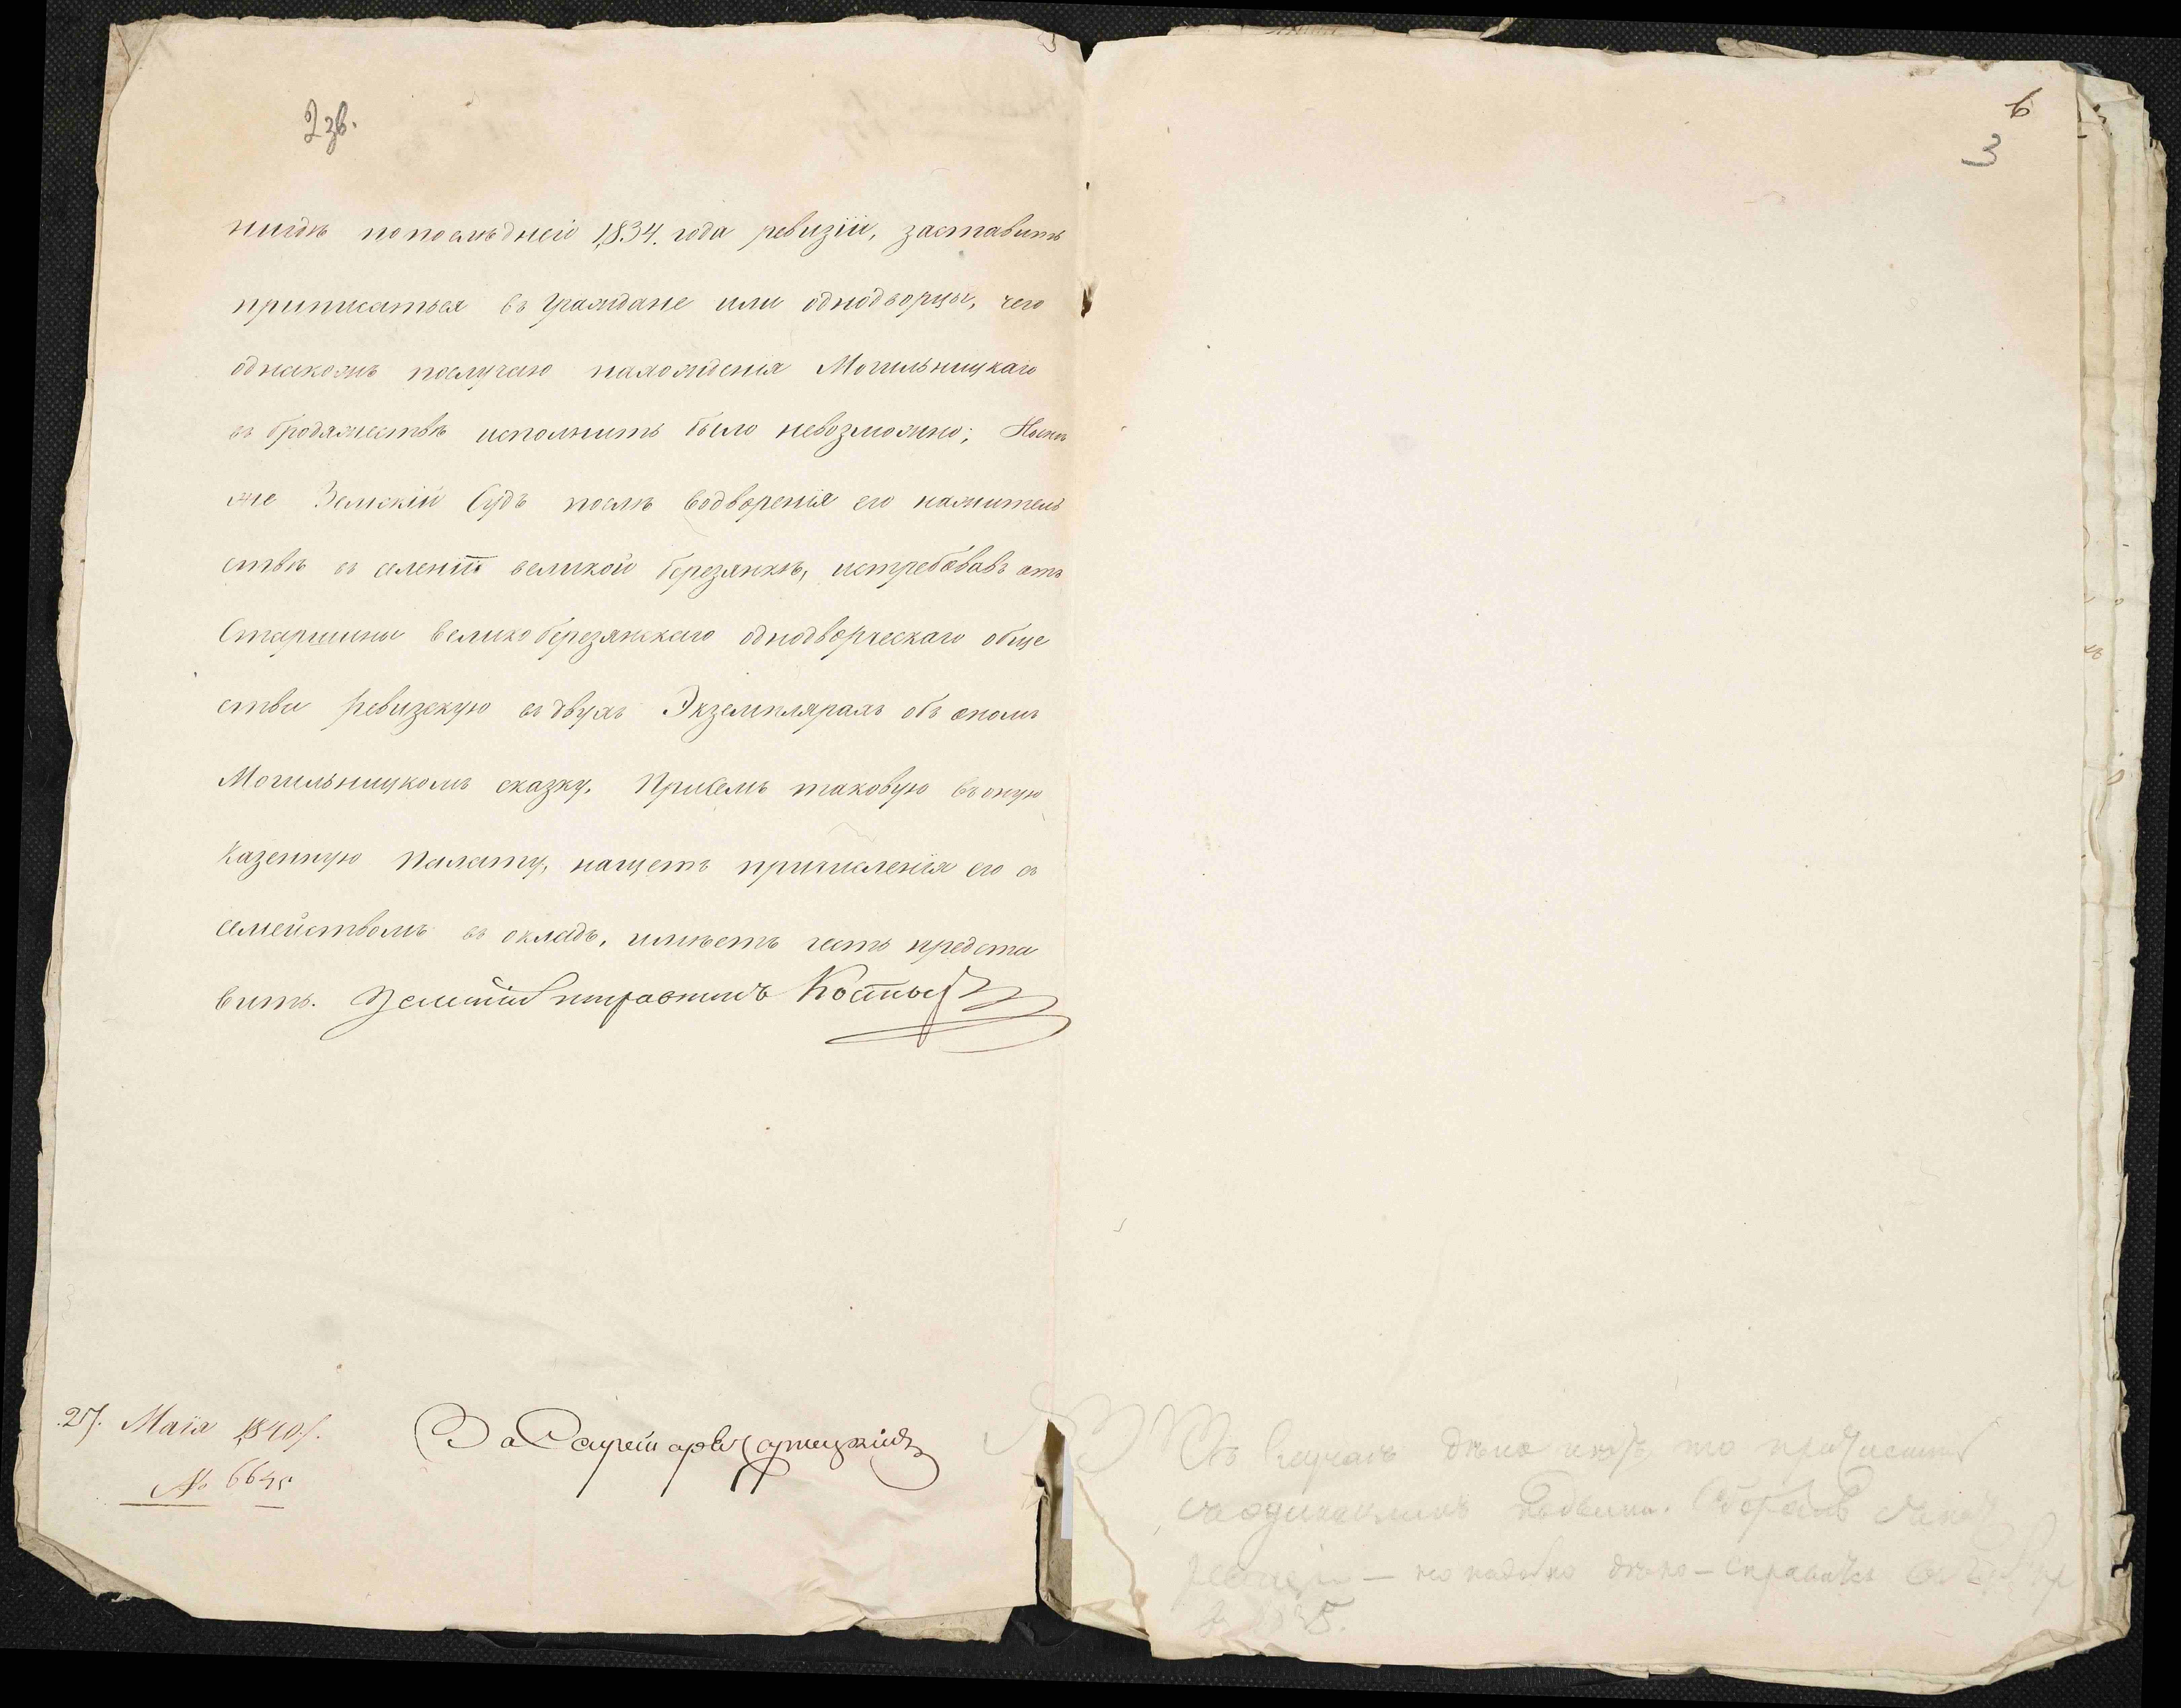 2 зв.
нигдѣ попослѣдней 1834. года ревизіи, заставить
приписаться въ граждане или однодворцы, чего
однакожъ послучаю нахожденія Могильницкаго
въ бродяжествѣ исполнить было невозможно; Нынѣ
же Земскій Судъ послѣ водворенія его нажитель
ствѣ въ селеніи великой березянкѣ, истребовавъ отъ
Старшины великоберезянскаго однодворческаго обще
ства ревизскую въ двухъ Экземплярахъ объ ономъ
Могильницкомъ сказку, Приемъ таковую въ оную
Казенную Палату, нащетъ причисленія его съ
семействомъ въ окладъ, имѣетъ честь предста
вить. Земскій исправникъ
27. Маія 1840 г.
№ 6645
За Секретаря
6
3
то
— но надобно дѣло — справиться